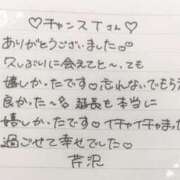 ♡チャンスTさん♡
ありがとうございました
久しぶりに会えてと〜っても
嬉しかったです♡忘れないでもう
良かった〜名 延長も本当に
嬉しかったです♡イチャイチャまた
過ごせて幸せでした♡
芹沢